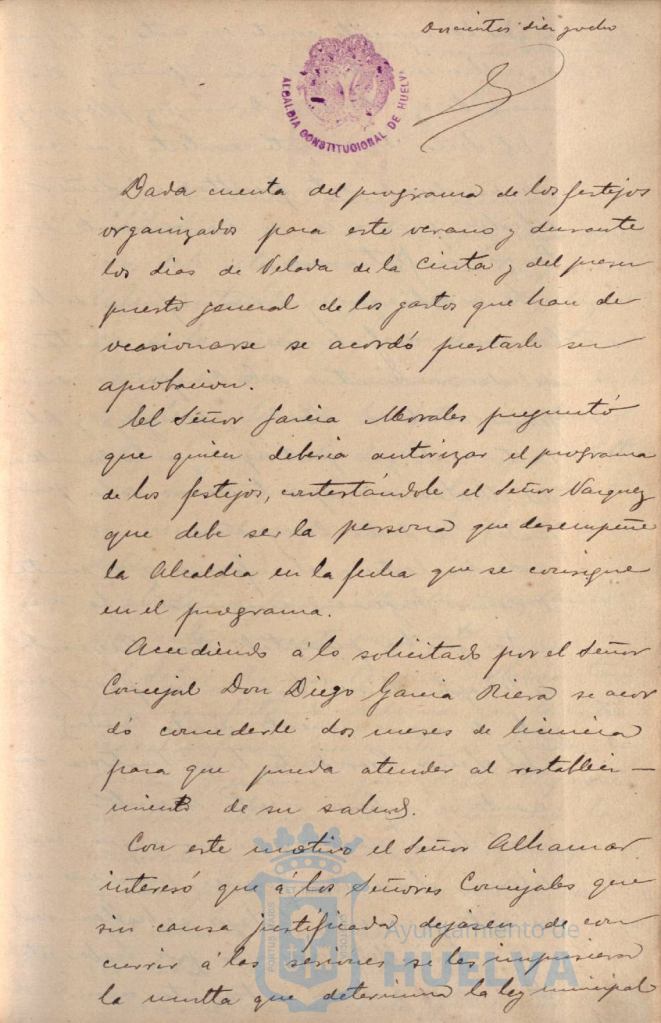 Doscientos diez y ocho
ALCALDIA CONSTITUCIONAL DE HUELVA
Dada cuenta del programa de los festejos
organizados para este verano y durante
los dias de Velada de la Cinta y del presu
puesto general de los gastos que han de
ocasionarse se acordó prestarle su
aprobacion.
El Señor Garcia Morales preguntó
que quien deberia autorizar el programa
de los festejos, contestándole el Señor Vazquez
que debe ser la persona que desempeñe
la Alcaldia en la fecha que se consigne
en el programa.
Accediendo á lo solicitado por el Señor
Concejal Don Diego Garcia Riera se acor
dó concederle dos meses de licencia
para que pueda atender al restableci-
miento de su salud.
Con este motivo el Señor Alhamar
interesó que á los Señores Concejales que
sin causa justificada dejasen de con
currir á las sesiones se les impusiera
la multa que determina la ley municipal
Ayuntamiento de
HUELVA